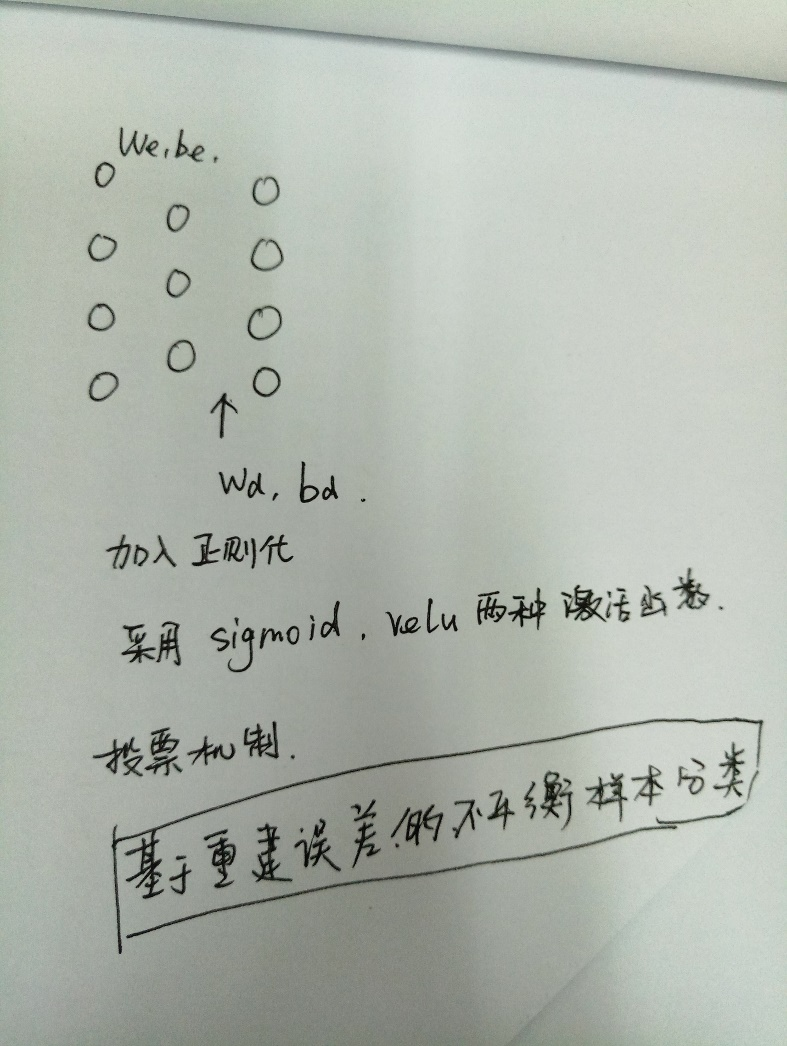 We, be.
Wd, bd.
加入正则化
采用 sigmoid, relu 两种激活函数.
投票机制.
基于重建误差的不平衡样本分类